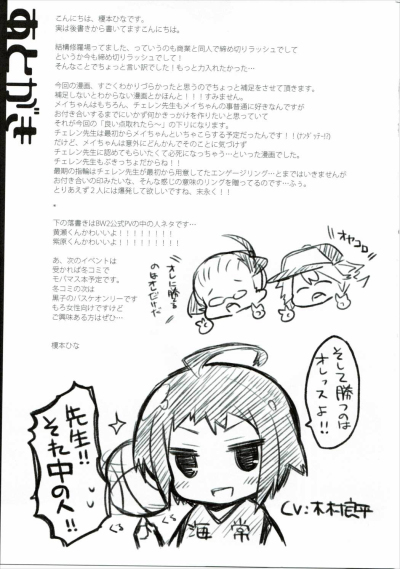 あとがき
こんにちは、榎本ひなです。
実は後書きから書いてますこんにちは。
結構修羅場ってました、っていうのも商業と同人で締め切りラッシュでして
というか今も締め切りラッシュでして!
そんなことでちょっと言い訳でした!もっと力入れたかった…
今回の漫画、すごくわかりづらかったと思うのでちょっと補足をさせて頂きます。
補足しないとわからない漫画とかほんと!!!すみません。
メイちゃんはもちろん、チェレン先生もメイちゃんの事普通に好きなんですが
お付き合いするまでにいかず何かきっかけを作りたいと思っていて
それが今回の「良い点取れたら~」の下りになります。
チェレン先生は最初からメイちゃんといちゃこらする予定だったんです!!(ナンダッテー)
だけど、メイちゃんは意外にどんかんでそのことに気づけず
チェレン先生に認めてもらいたくて必死になっちゃう…といった漫画でした。
チェレン先生もぶきっちょだからね!!
最期の指輪はチェレン先生が最初から用意してたエンゲージリング…とまではいきませんが
お付き合いの印みたいな、そんな感じの意味のリングを贈ってるのです…ふぅ。
とりあえず2人には爆発して欲しいですね、末永く!!
*
下の落書きはBW2公式PVの中の人ネタです…
黄瀬くんかわいいよ!!!!!!!!!
紫原くんかわいいよ!!!!!!!!!
あ、次のイベントは
受かれば冬コミで
モバマス本予定です。
冬コミの次は
黒子のバスケオンリーです
もろ女性向けですけど
ご興味ある方はぜひ…
榎本ひな
オヤコロ
オレに勝てる
のはオレだけだ
そして勝つのは
オレッスよ!!
先生!!
それ中の人!!
ぐる
ぐる
海常
CV:木村良平